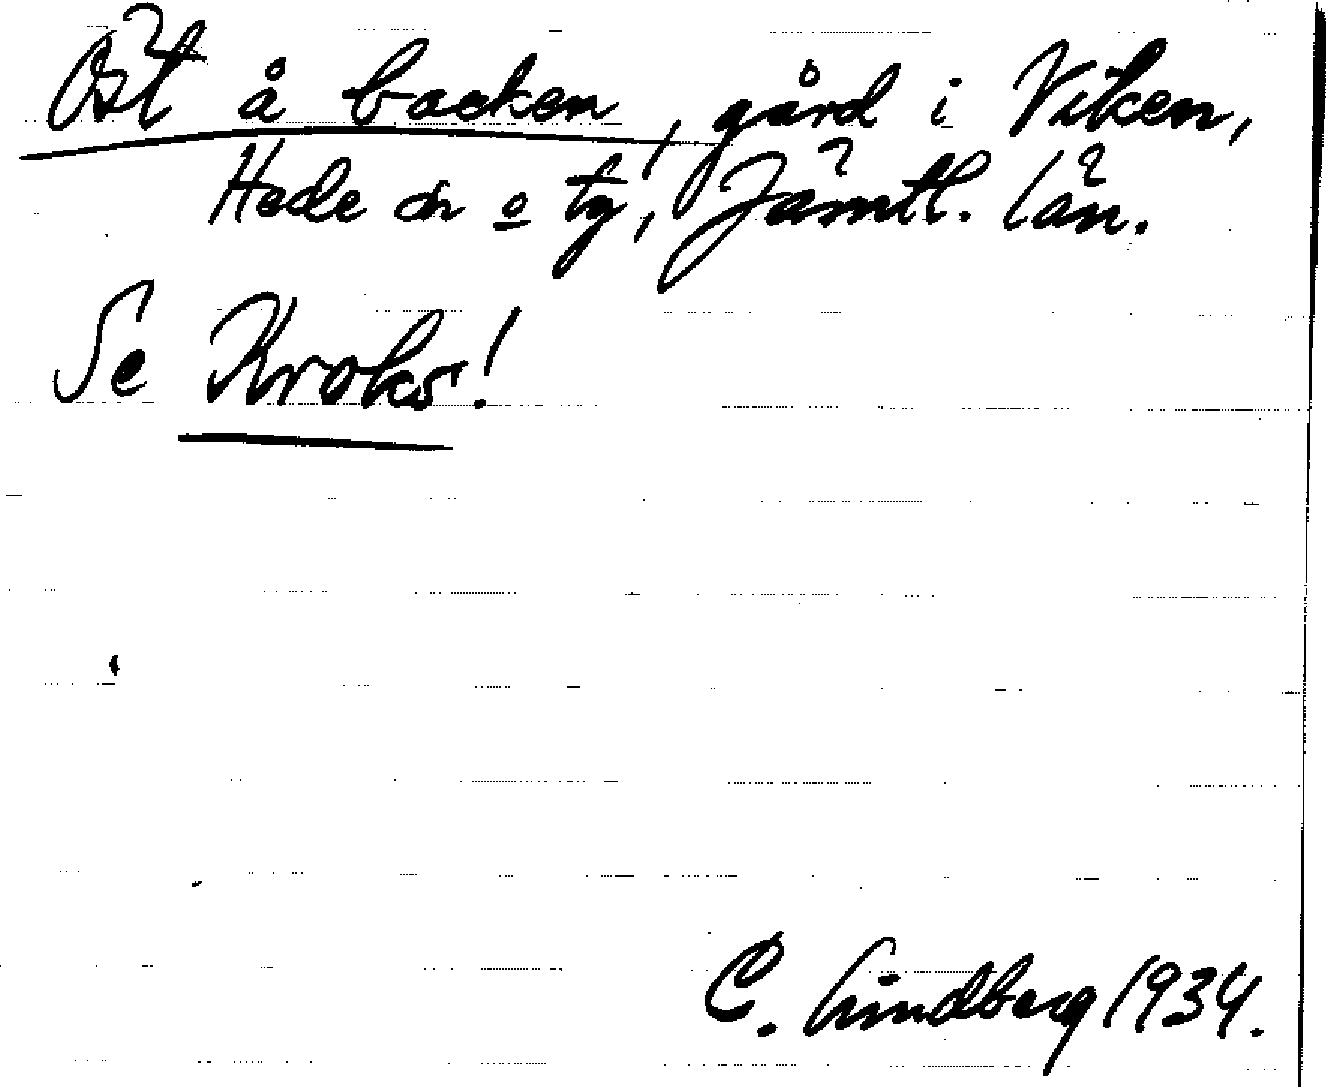 Öst å backen, gård i Viken,
Hede sn o tg, Jämtl. län.
Se Kroks!
C. Lindberg 1934.